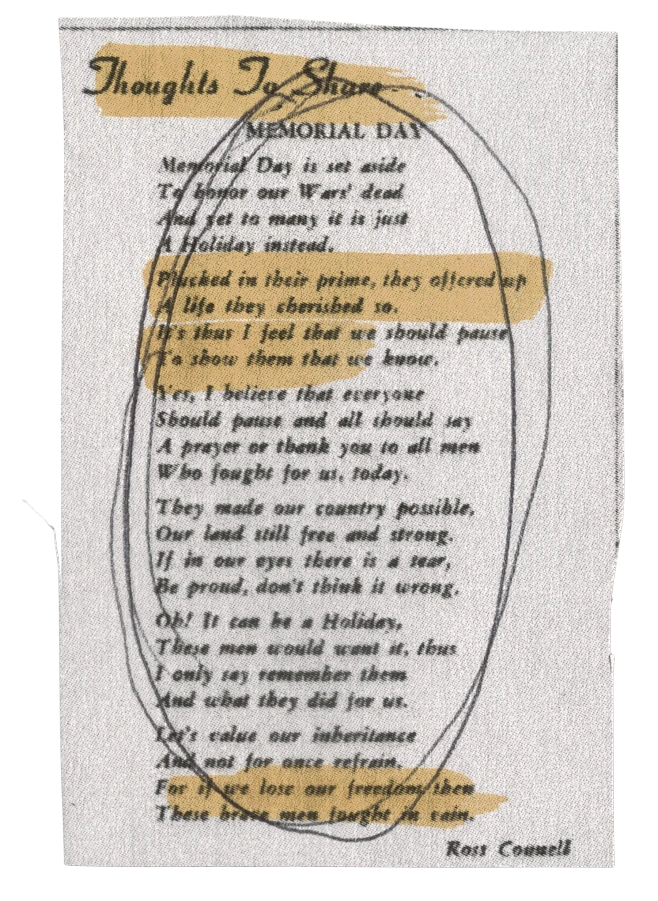 Thoughts To Share
MEMORIAL DAY
Memorial Day is set aside
To honor our Wars' dead
And yet to many it is just
A Holiday instead.
Plucked in their prime, they offered up
A life they cherished so.
It's thus I feel that we should pause
To show them that we know.
Yes, I believe that everyone
Should pause and all should say
A prayer or thank you to all men
Who fought for us, today.
They made our country possible,
Our land still free and strong.
If in our eyes there is a tear,
Be proud, don't think it wrong.
Oh! It can be a Holiday,
These men would want it, thus
I only say remember them
And what they did for us.
Let's value our inheritance
And not for once refrain,
For if we lose our freedom then
These brave men fought in vain.
Ross Connell